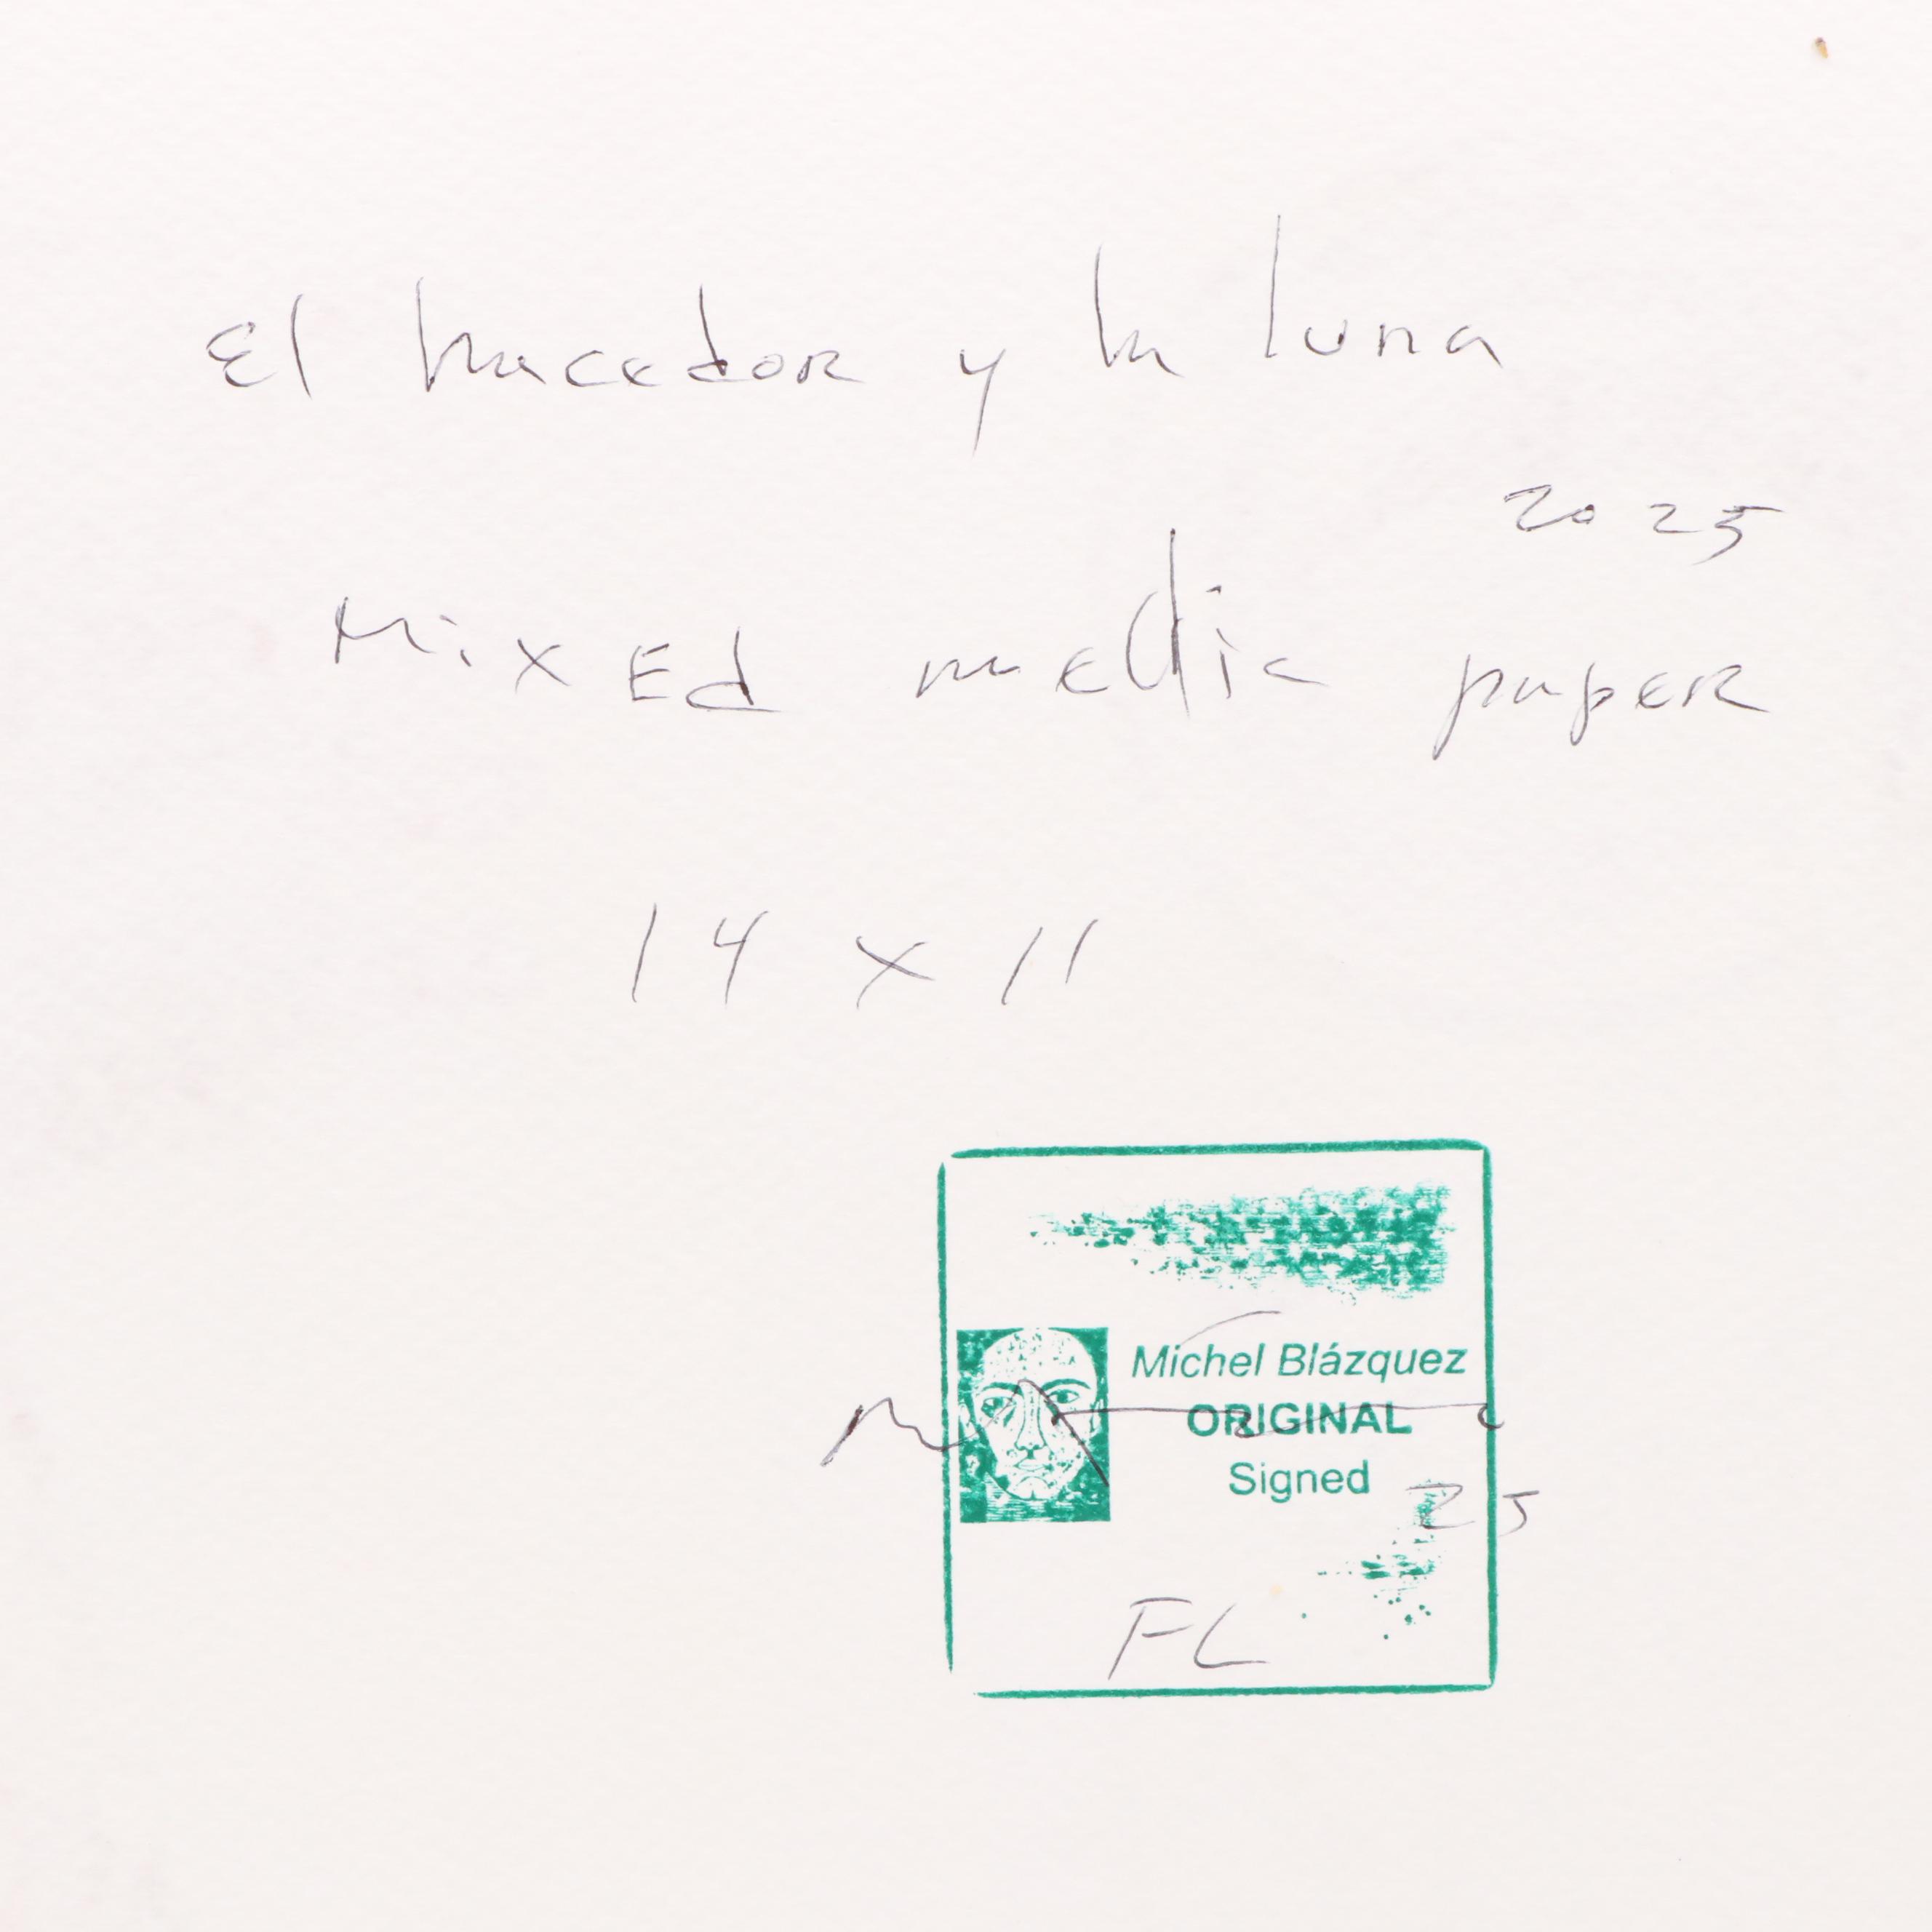 El hacedor y la luna
2025
Mixed media paper
14 x 11
Michel Blázquez
ORIGINAL
Signed
25
FL